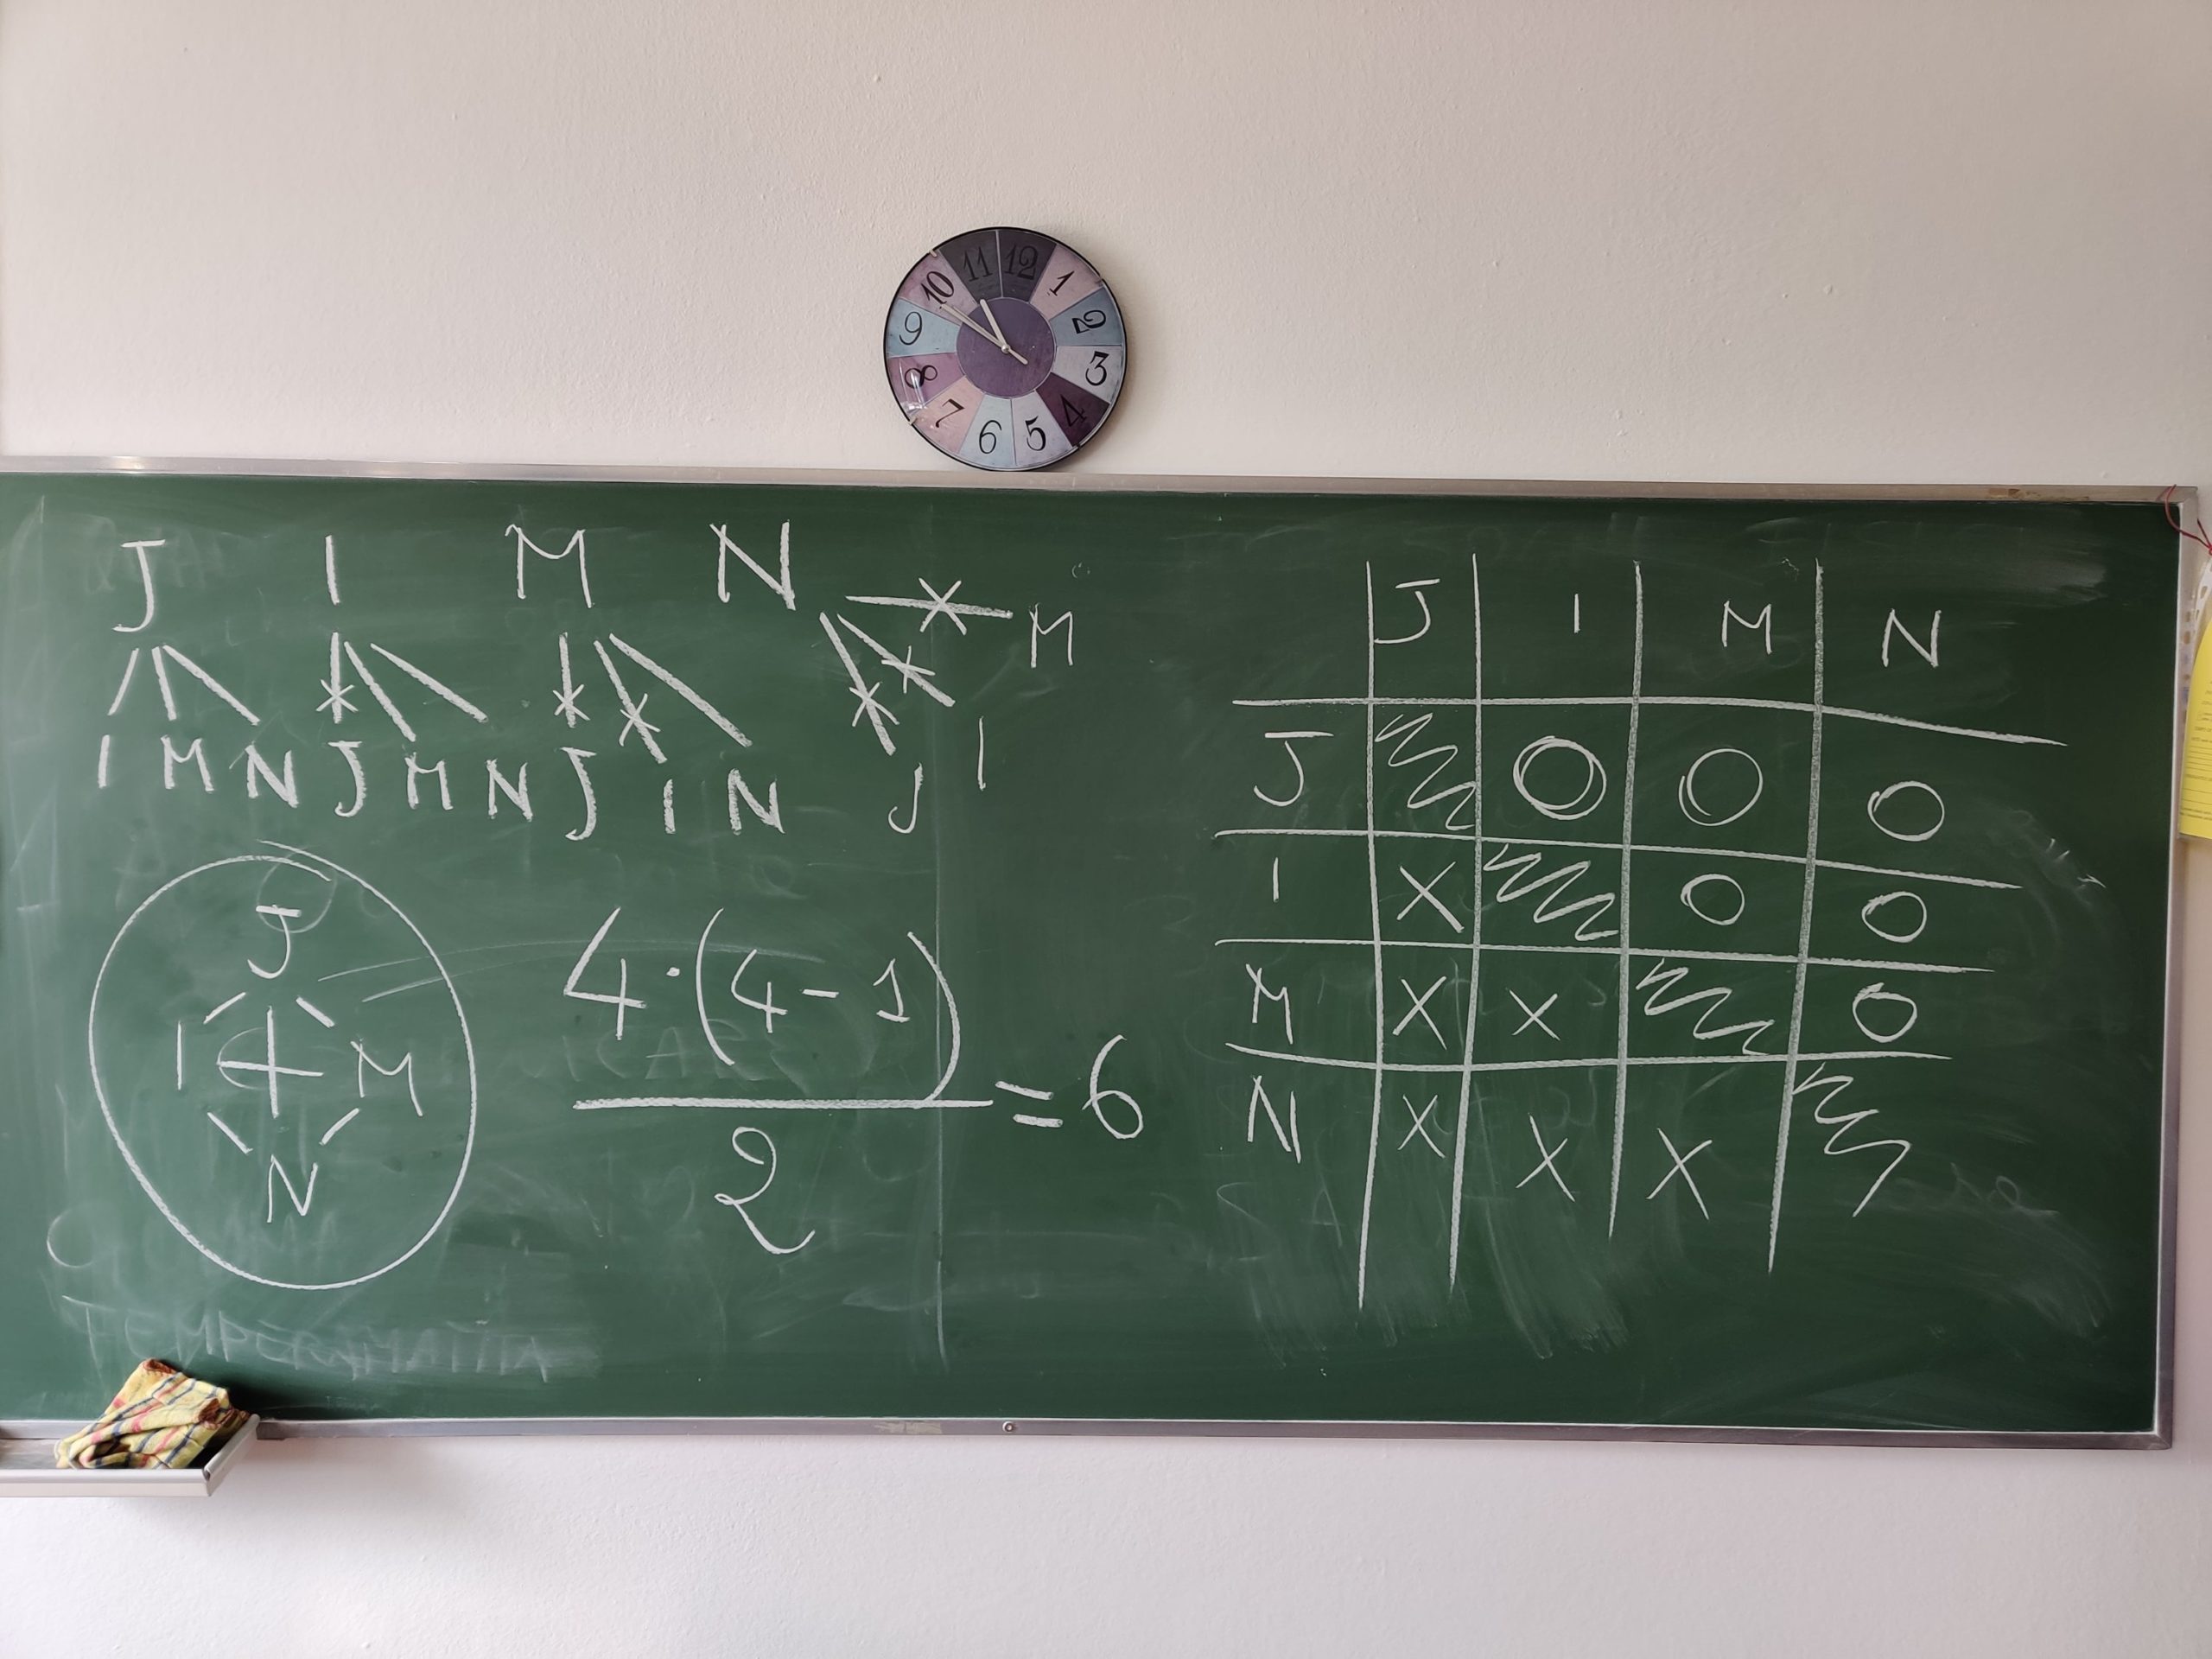 11 12 1
10 2
9 3
8 4
7 6 5
J I M N
M
I M N J M N J I N J I
J
I M
N
4·(4-1)
2
=6
J I M N
J O O O
I X O O
M X X O
N X X X